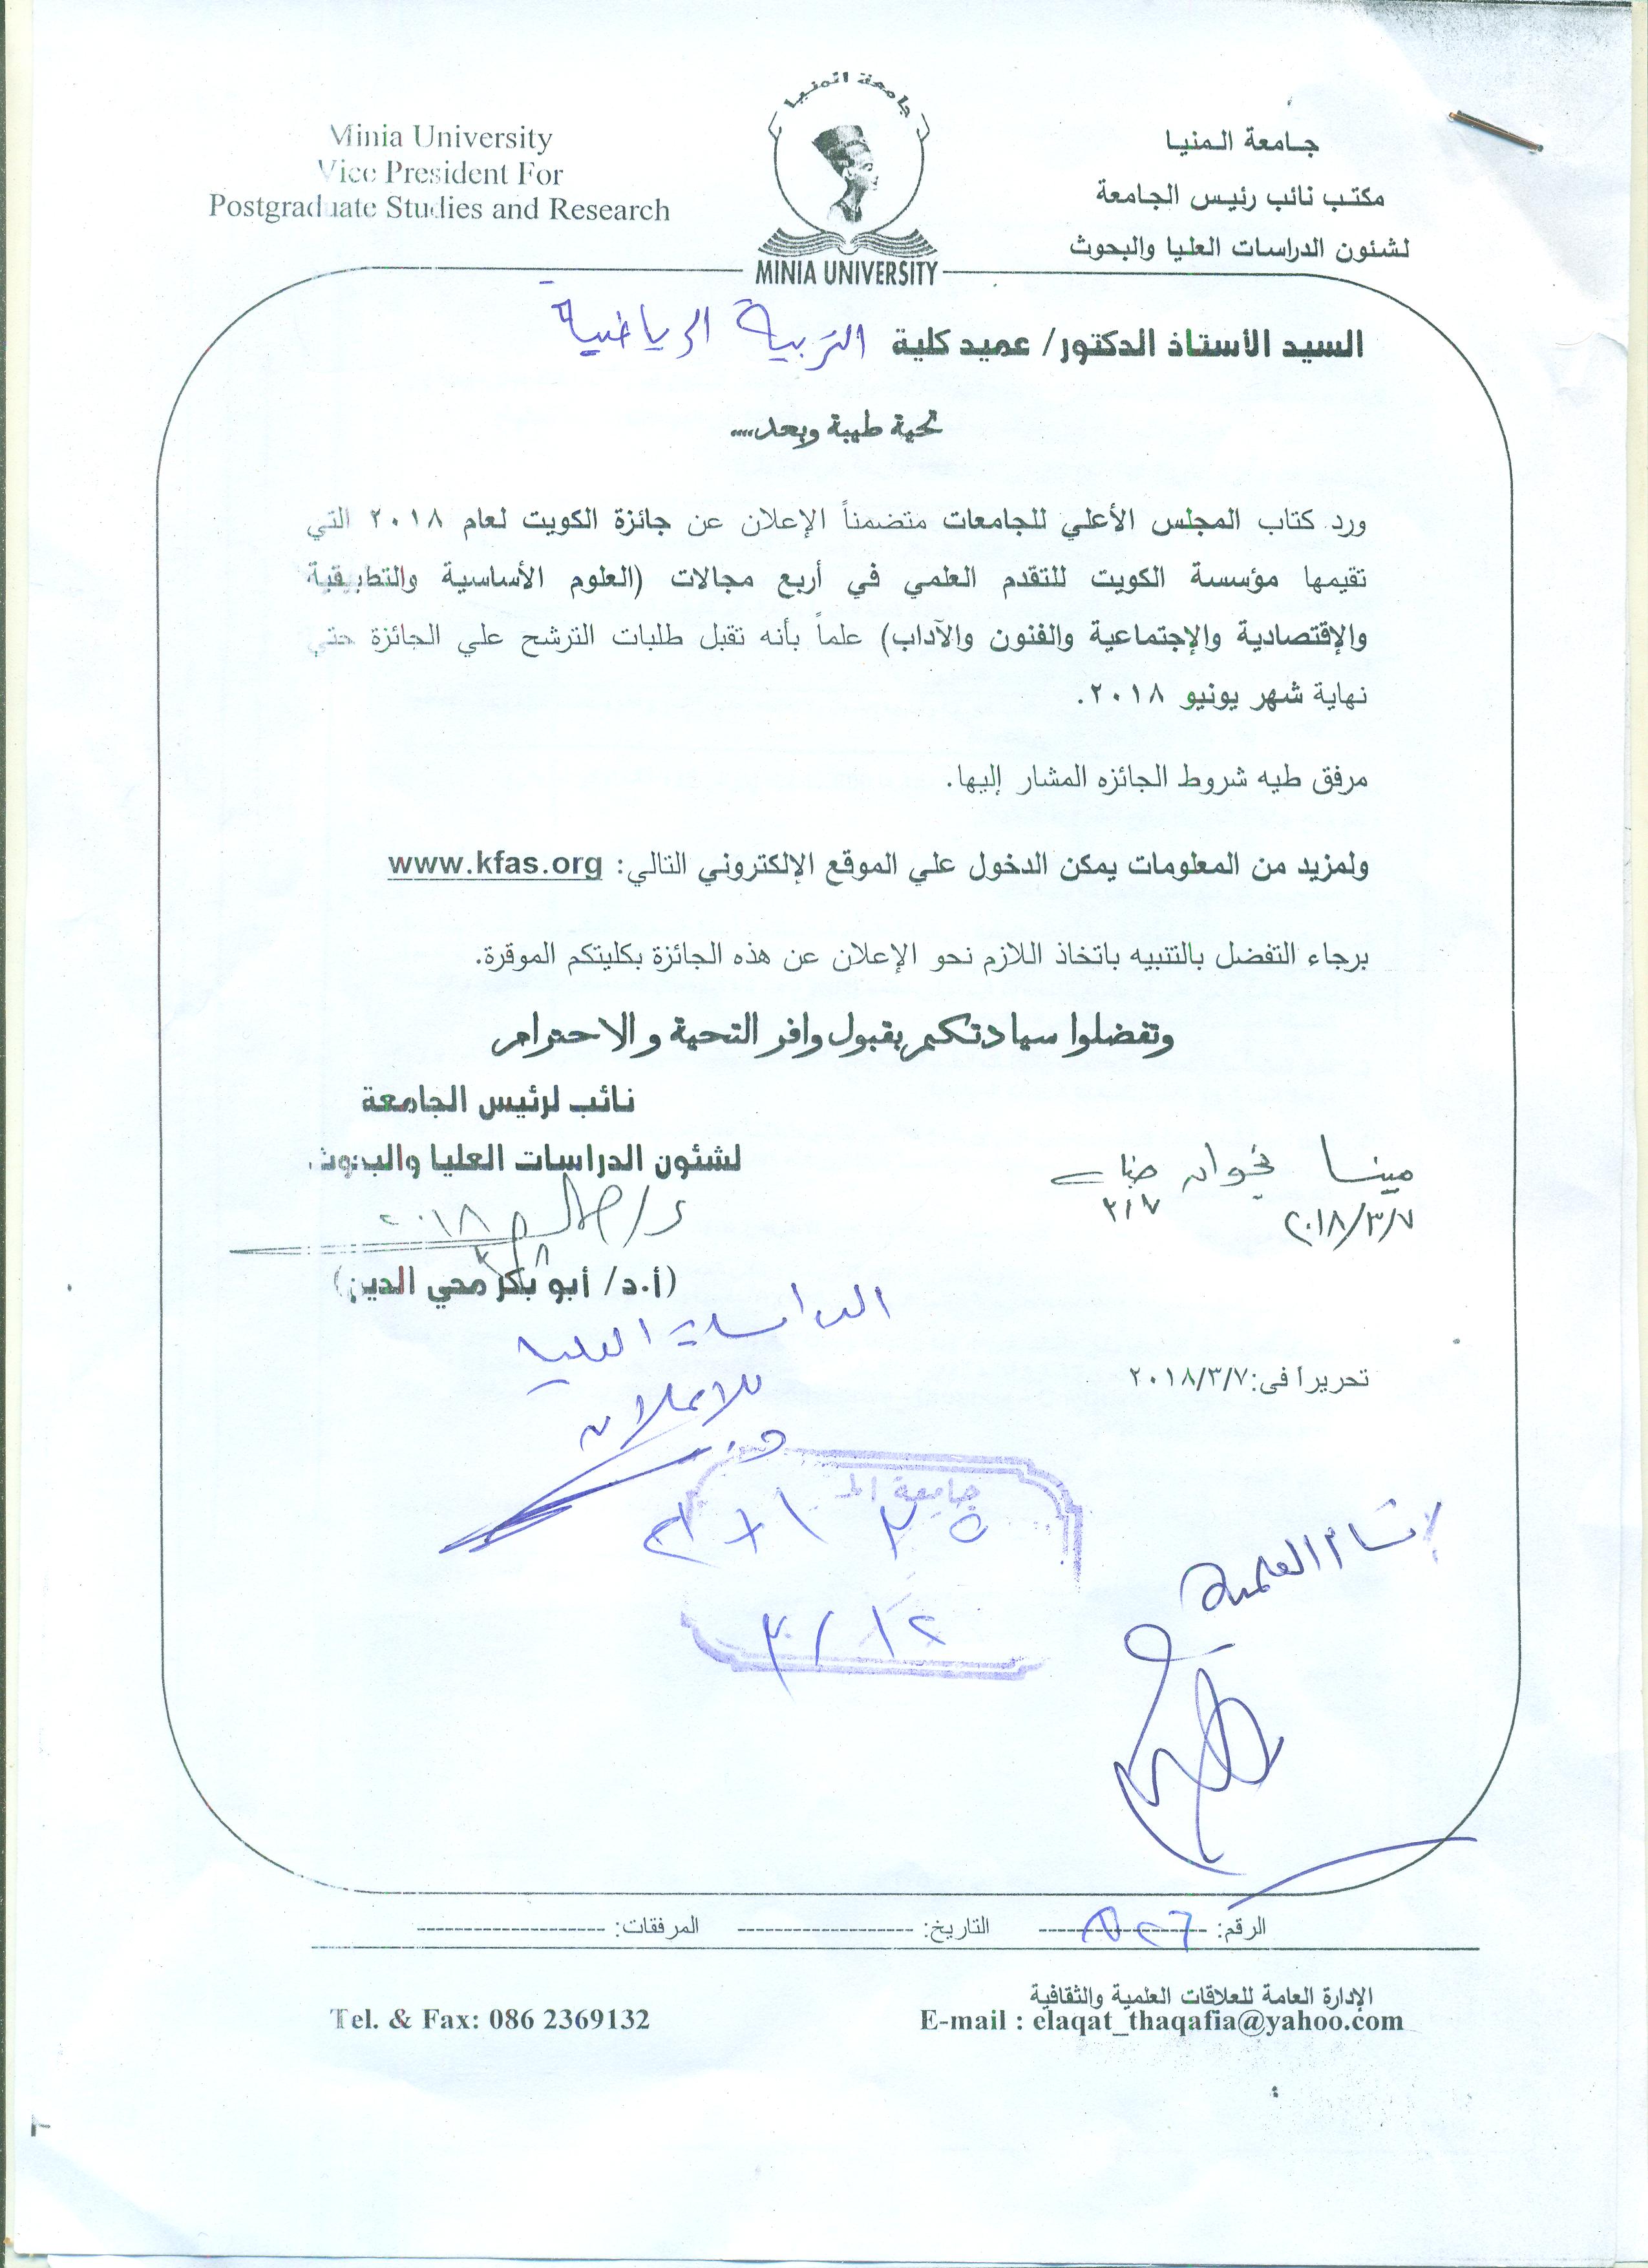 جامعة المنيا
Minia University
Vice President For
Postgraduate Studies and Research
MINIA UNIVERSITY
جامعة المنيا
مكتب نائب رئيس الجامعة
لشئون الدراسات العليا والبحوث
السيد الأستاذ الدكتور/ عميد كلية التربية الرياضية
تحية طيبة وبعد....
ورد كتاب المجلس الأعلي للجامعات متضمناً الإعلان عن جائزة الكويت لعام ٢٠١٨ التي
تقيمها مؤسسة الكويت للتقدم العلمي في أربع مجالات (العلوم الأساسية والتطبيقية
والإقتصادية والإجتماعية والفنون والآداب) علماً بأنه تقبل طلبات الترشح علي الجائزة حتي
نهاية شهر يونيو ٢٠١٨.
مرفق طيه شروط الجائزه المشار إليها.
ولمزيد من المعلومات يمكن الدخول علي الموقع الإلكتروني التالي: www.kfas.org
برجاء التفضل بالتنبيه باتخاذ اللازم نحو الإعلان عن هذه الجائزة بكليتكم الموقرة.
وتفضلوا سيادتكم بقبول وافر التحية والاحترام
نائب لرئيس الجامعة
لشئون الدراسات العليا والبحوث
مينا
٢٠١٨/٣/٧
٣/٧
٢٠١٨
(أ.د/ أبو بكر محي الدين)
الدراسات العليا
للاعلان
تحريرا فى:٢٠١٨/٣/٧
جامعة الم
٣/١٢
العلمية
الرقم: التاريخ: المرفقات:
الإدارة العامة للعلاقات العلمية والثقافية
E-mail : elaqat_thaqafia@yahoo.com
Tel. & Fax: 086 2369132